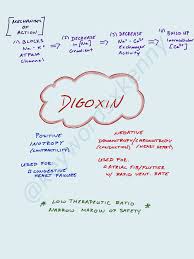 MECHANISM OF ACTION
(1) BLOCKS Na-K+ ATPase Channel
(2) DECREASE in [Na+] Gradient
(3) DECREASE Na+-Ca2+ Exchanger Activity
(4) BUILD UP Intracellular [Ca2+]
DIGOXIN
POSITIVE
INOTROPY
(CONTRACTILITY)
USED FOR:
CONGESTIVE
HEART FAILURE
NEGATIVE
DROMOTROPHY/CHRONOTROPY
(CONDUCTION) (HEART RATE)
USED FOR:
ATRIAL FIB/FLUTTER
W/ RAPID VENT. RATE
* LOW THERAPEUTIC RATIO *
NARROW MARGIN OF SAFETY